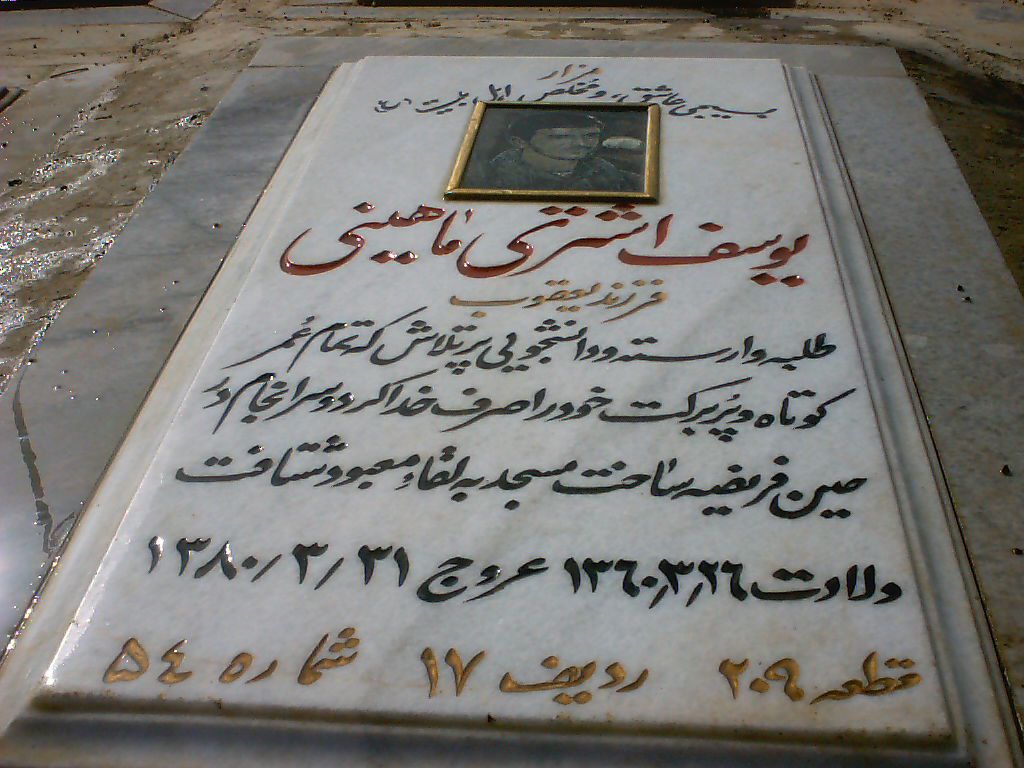 مزار
بسیجی عاشق و مخلص اهل بیت (ع)
یوسف اشتری ماهینی
فرزند یعقوب
طلبه وارسته و دانشجویی پرتلاش که تمام عُمر
کوتاه و پُر برکت خود را صرف خدا کرد و سرانجام دَر
حین فریضه ساخت مسجد به لقاءِ معبود شتافت
ولادت ۱۳۶۰/۳/۲۶ عروج ۱۳۸۰/۳/۳۱
قطعه ۲۰۹ ردیف ۱۷ شماره ۵۴